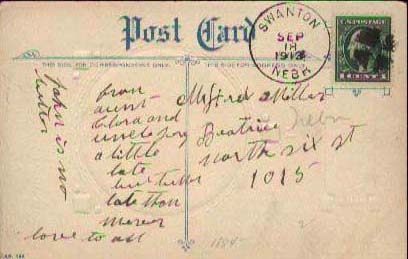 Post Card
THE SIDE FOR CORRESPONDENCE ONLY.
THIS SIDE FOR ADDRESS ONLY.
SWANTON
SEP
18
1913
NEBR
U.S. POSTAGE
1 CENT 1
from
aunt
Clora and
uncle
a little
late
but better
late than
never
love to all
John is no
better
Miller
Beatrice Nebr
north six st
1015